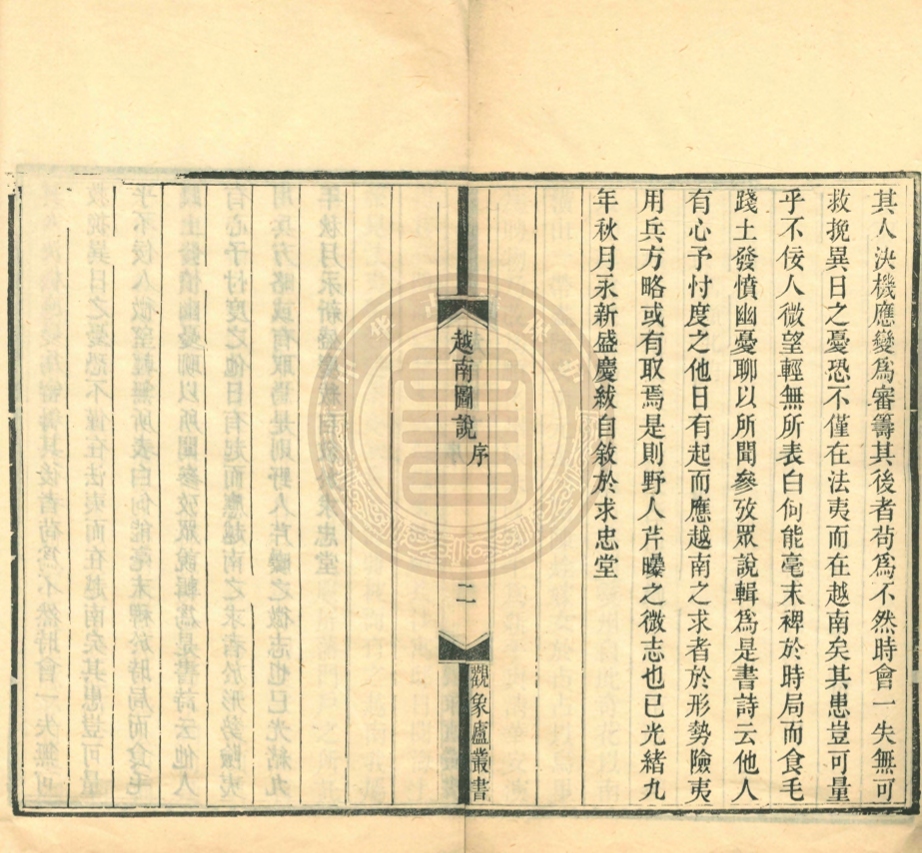 其人決機應變爲審籌其後者苟爲不然時會一失無可
救挽異日之憂恐不僅在法夷而在越南矣其患豈可量
乎不佞人微望輕無所表白何能毫末裨於時局而食毛
踐土發憤幽憂聊以所聞參攷眾說輯爲是書詩云他人
有心予忖度之他日有起而應越南之求者於形勢險夷
用兵方略或有取焉是則野人芹曝之微志也已光緒九
年秋月永新盛慶紱自敘於求忠堂
越南圖說
序
二
觀象廬叢書